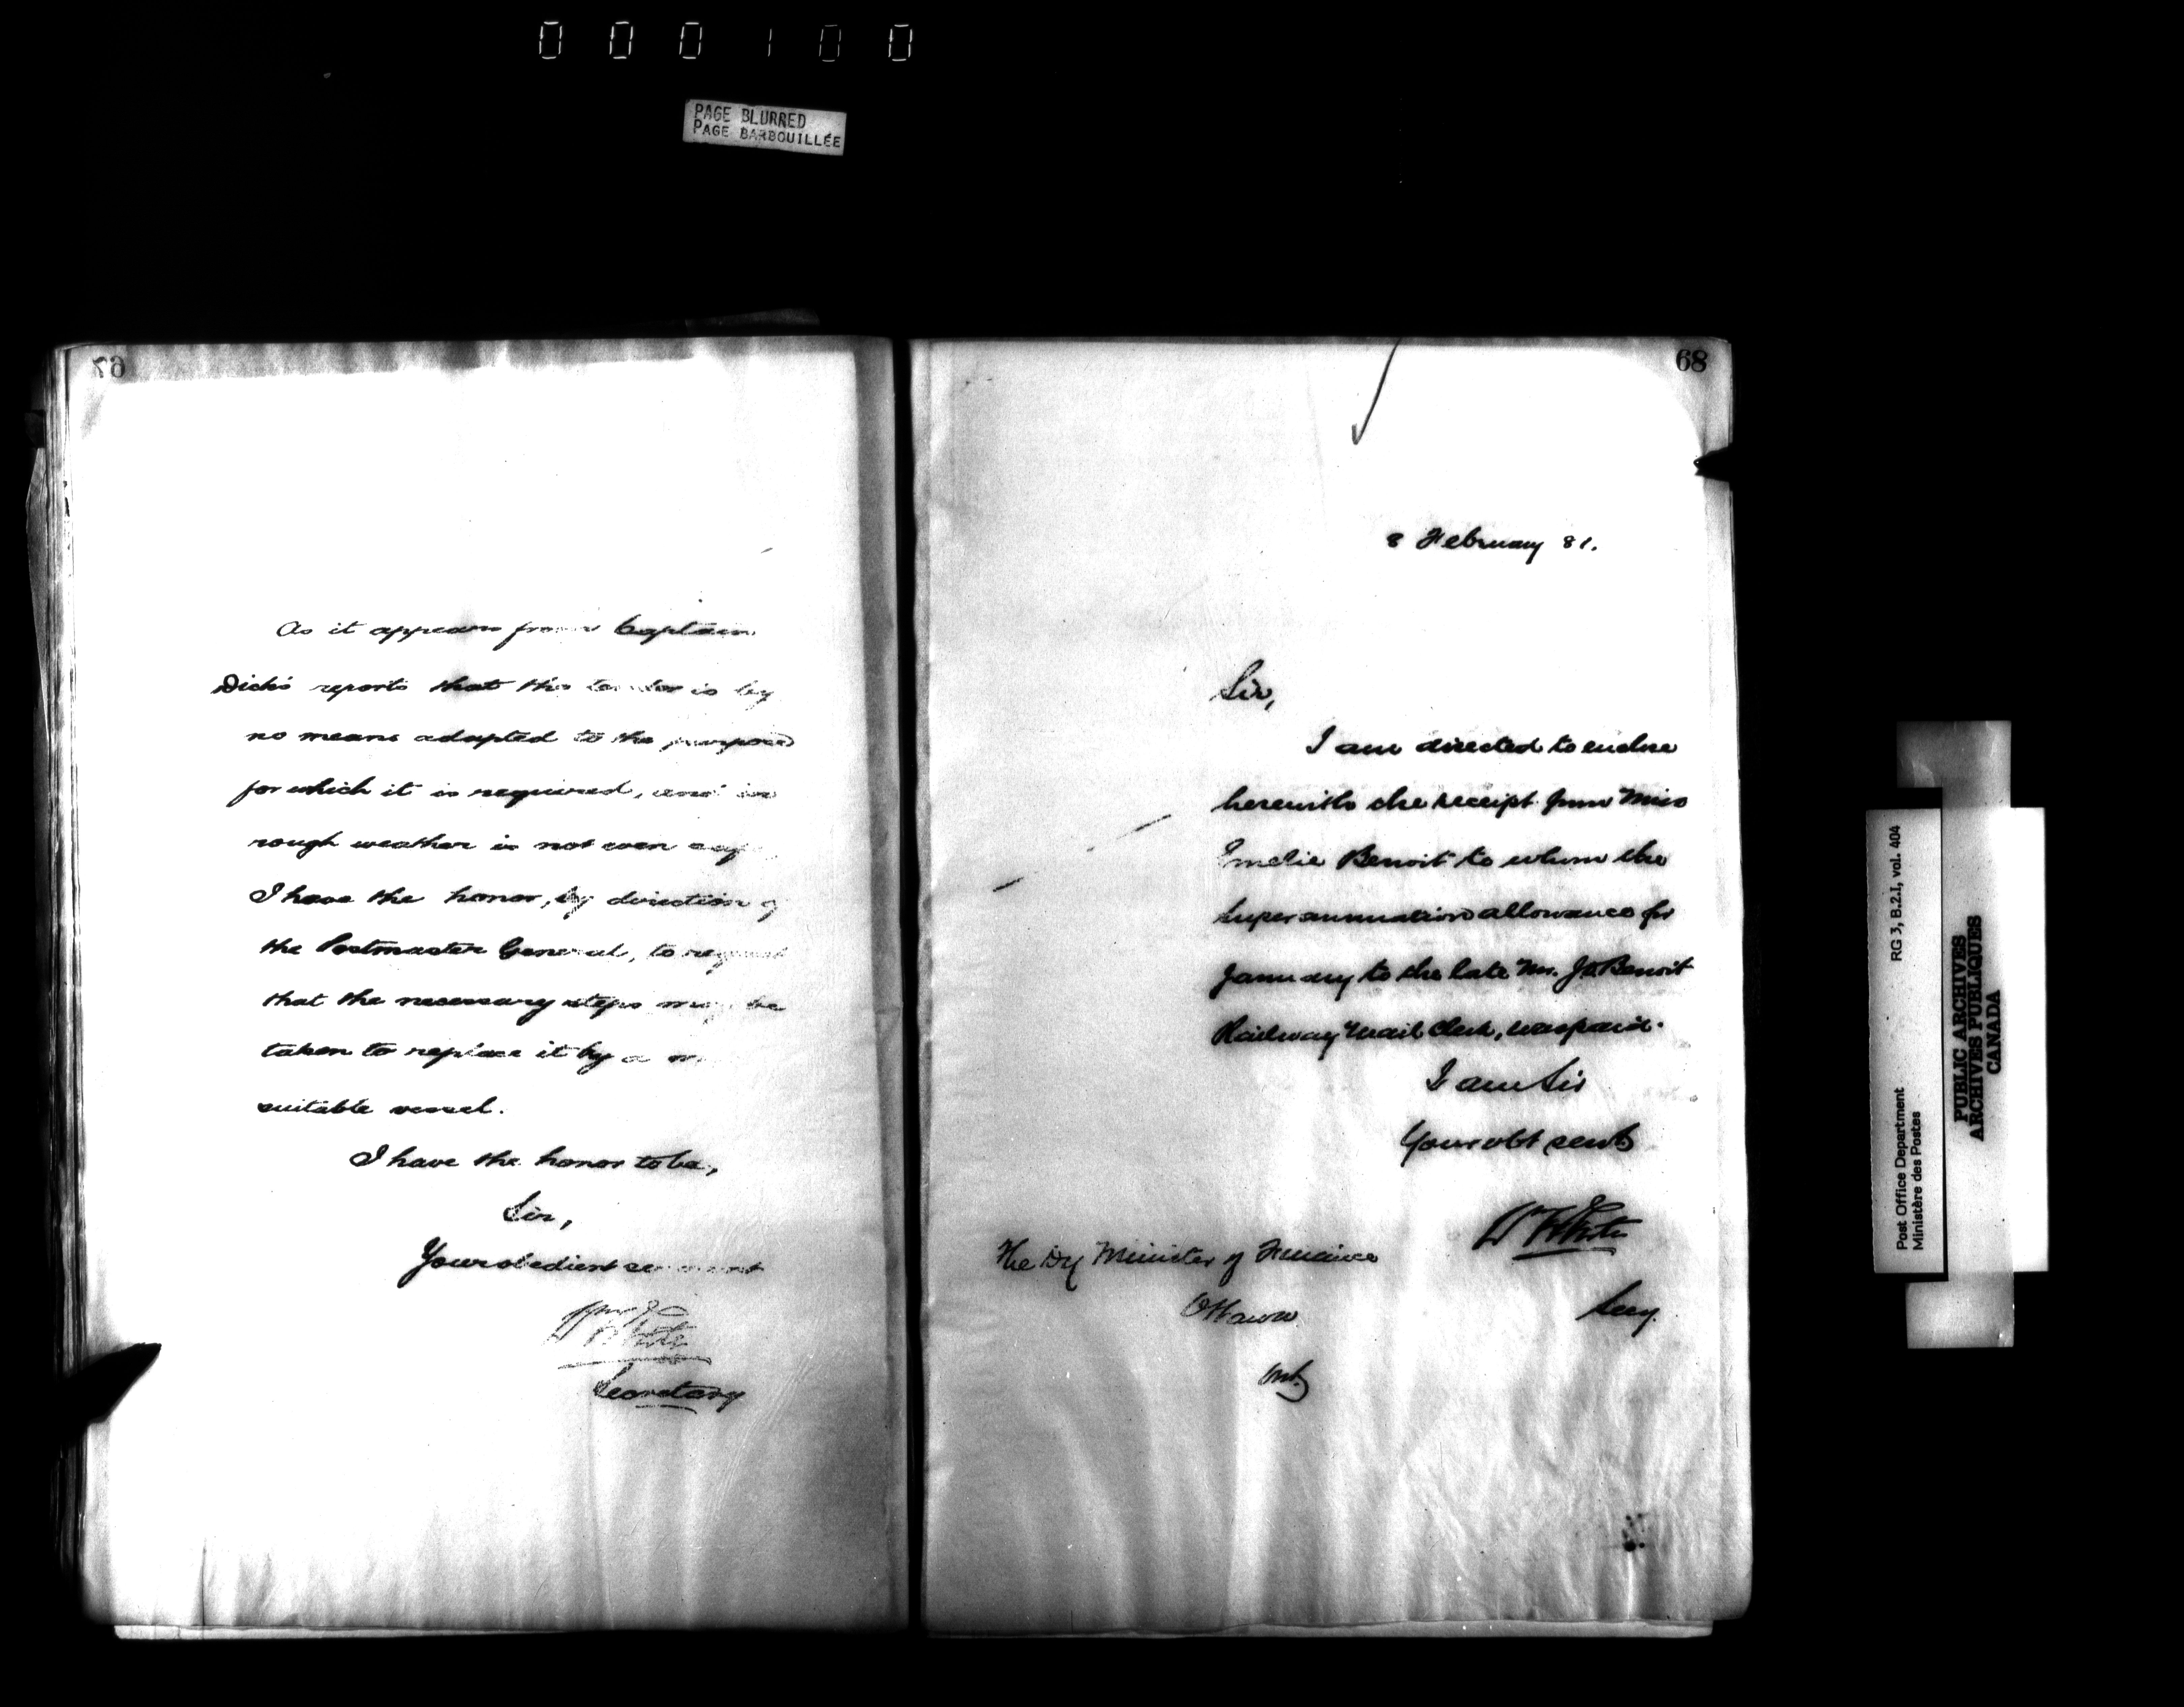 000100
PAGE BLURRED
PAGE BARBOUILLÉE
67
As it appears from Captain
Dick's reports that the tender is by
no means adapted to the purpose
for which it is required, and in
rough weather is not even
I have the honor, by direction of
the Postmaster General, to request
that the necessary steps may be
taken to replace it by a
suitable vessel.
I have the honor to be,
Sir,
Your obedient servant
Wm White
Secretary
68
8 February 81.
Sir,
I am directed to enclose
herewith the receipt from Miss
Imelie Benoit to whom the
superannuation allowance for
January to the late Mr. Benoit
Railway Mail Clerk, was paid.
I am Sir
Your obt servt
W White
Secy.
The Dy Minister of Finance
Ottawa
Ont.
RG 3, B.2.I, vol. 404
Post Office Department
Ministère des Postes
PUBLIC ARCHIVES
ARCHIVES PUBLIQUES
CANADA